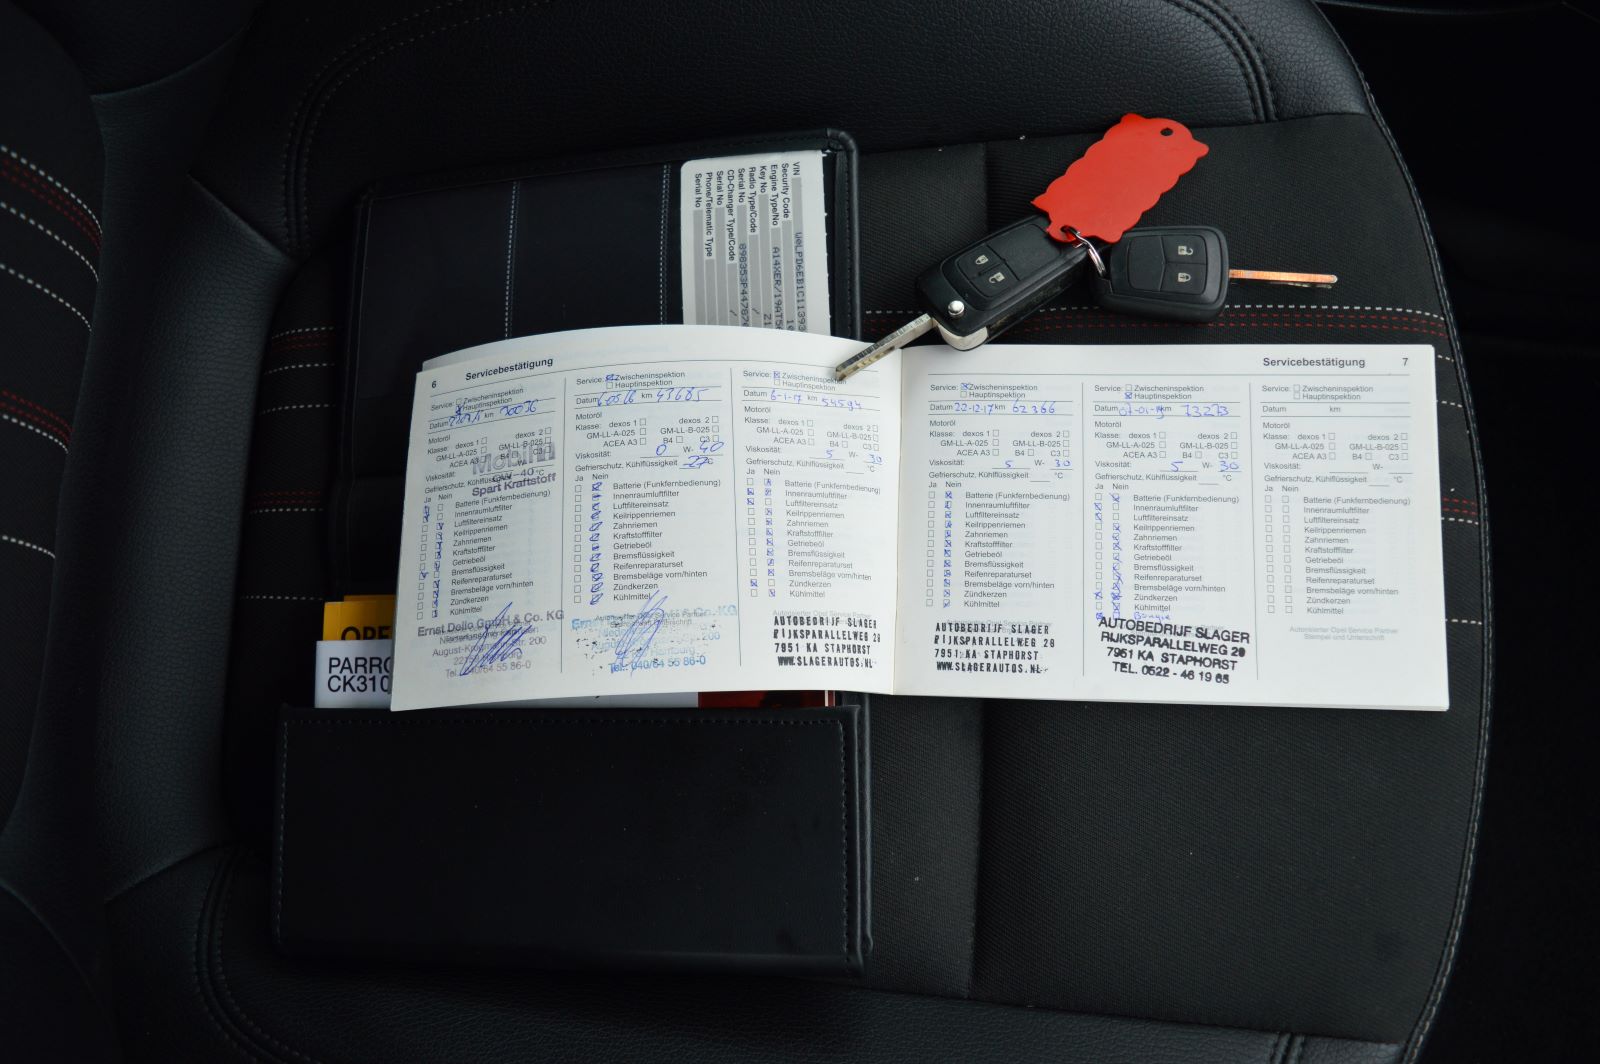 VIN
Security Code
Engine Type/No
Key No
Radio Type/Code
Serial No
CD-Changer Type/Code
Serial No
Phone/Telematic Type
Serial No
OPE
PARRO
CK310
6 Servicebestätigung
Service: Zwischeninspektion
Hauptinspektion
Datum km
Motoröl
Klasse: dexos 1 dexos 2
GM-LL-A-025 GM-LL-B-025
ACEA A3 B4 C3
Viskosität: W-
Mobil
Spart Kraftstoff
Gefrierschutz, Kühlflüssigkeit °C
Ja Nein
Batterie (Funkfernbedienung)
Innenraumluftfilter
Luftfiltereinsatz
Keilrippenriemen
Zahnriemen
Kraftstofffilter
Getriebeöl
Bremsflüssigkeit
Reifenreparaturset
Bremsbeläge vorn/hinten
Zündkerzen
Kühlmittel
Ernst Dello GmbH & Co. KG
Service: Zwischeninspektion
Hauptinspektion
Datum km 43685
Motoröl
Klasse: dexos 1 dexos 2
GM-LL-A-025 GM-LL-B-025
ACEA A3 B4 C3
Viskosität: 0 W- 40
Gefrierschutz, Kühlflüssigkeit -27 °C
Ja Nein
Batterie (Funkfernbedienung)
Innenraumluftfilter
Luftfiltereinsatz
Keilrippenriemen
Zahnriemen
Kraftstofffilter
Getriebeöl
Bremsflüssigkeit
Reifenreparaturset
Bremsbeläge vorn/hinten
Zündkerzen
Kühlmittel
Tel.: 040/64 55 86-0
Service: Zwischeninspektion
Hauptinspektion
Datum 6-1-17 km 54594
Motoröl
Klasse: dexos 1 dexos 2
GM-LL-A-025 GM-LL-B-025
ACEA A3 B4 C3
Viskosität: 5 W- 30
Gefrierschutz, Kühlflüssigkeit °C
Ja Nein
Batterie (Funkfernbedienung)
Innenraumluftfilter
Luftfiltereinsatz
Keilrippenriemen
Zahnriemen
Kraftstofffilter
Getriebeöl
Bremsflüssigkeit
Reifenreparaturset
Bremsbeläge vorn/hinten
Zündkerzen
Kühlmittel
AUTOBEDRIJF SLAGER
RIJKSPARALLELWEG 28
7951 KA STAPHORST
WWW.SLAGERAUTOS.NL
Servicebestätigung 7
Service: Zwischeninspektion
Hauptinspektion
Datum 22-12-17 km 62366
Motoröl
Klasse: dexos 1 dexos 2
GM-LL-A-025 GM-LL-B-025
ACEA A3 B4 C3
Viskosität: 5 W- 30
Gefrierschutz, Kühlflüssigkeit °C
Ja Nein
Batterie (Funkfernbedienung)
Innenraumluftfilter
Luftfiltereinsatz
Keilrippenriemen
Zahnriemen
Kraftstofffilter
Getriebeöl
Bremsflüssigkeit
Reifenreparaturset
Bremsbeläge vorn/hinten
Zündkerzen
Kühlmittel
AUTOBEDRIJF SLAGER
RIJKSPARALLELWEG 28
7951 KA STAPHORST
WWW.SLAGERAUTOS.NL
Service: Zwischeninspektion
Hauptinspektion
Datum 07-01-19 km 73273
Motoröl
Klasse: dexos 1 dexos 2
GM-LL-A-025 GM-LL-B-025
ACEA A3 B4 C3
Viskosität: 5 W- 30
Gefrierschutz, Kühlflüssigkeit °C
Ja Nein
Batterie (Funkfernbedienung)
Innenraumluftfilter
Luftfiltereinsatz
Keilrippenriemen
Zahnriemen
Kraftstofffilter
Getriebeöl
Bremsflüssigkeit
Reifenreparaturset
Bremsbeläge vorn/hinten
Zündkerzen
Kühlmittel
Bougie
AUTOBEDRIJF SLAGER
RIJKSPARALLELWEG 29
7951 KA STAPHORST
TEL. 0522 - 46 19 65
Service: Zwischeninspektion
Hauptinspektion
Datum km
Motoröl
Klasse: dexos 1 dexos 2
GM-LL-A-025 GM-LL-B-025
ACEA A3 B4 C3
Viskosität: W-
Gefrierschutz, Kühlflüssigkeit °C
Ja Nein
Batterie (Funkfernbedienung)
Innenraumluftfilter
Luftfiltereinsatz
Keilrippenriemen
Zahnriemen
Kraftstofffilter
Getriebeöl
Bremsflüssigkeit
Reifenreparaturset
Bremsbeläge vorn/hinten
Zündkerzen
Kühlmittel
Autorisierter Opel Service Partner
Stempel und Unterschrift